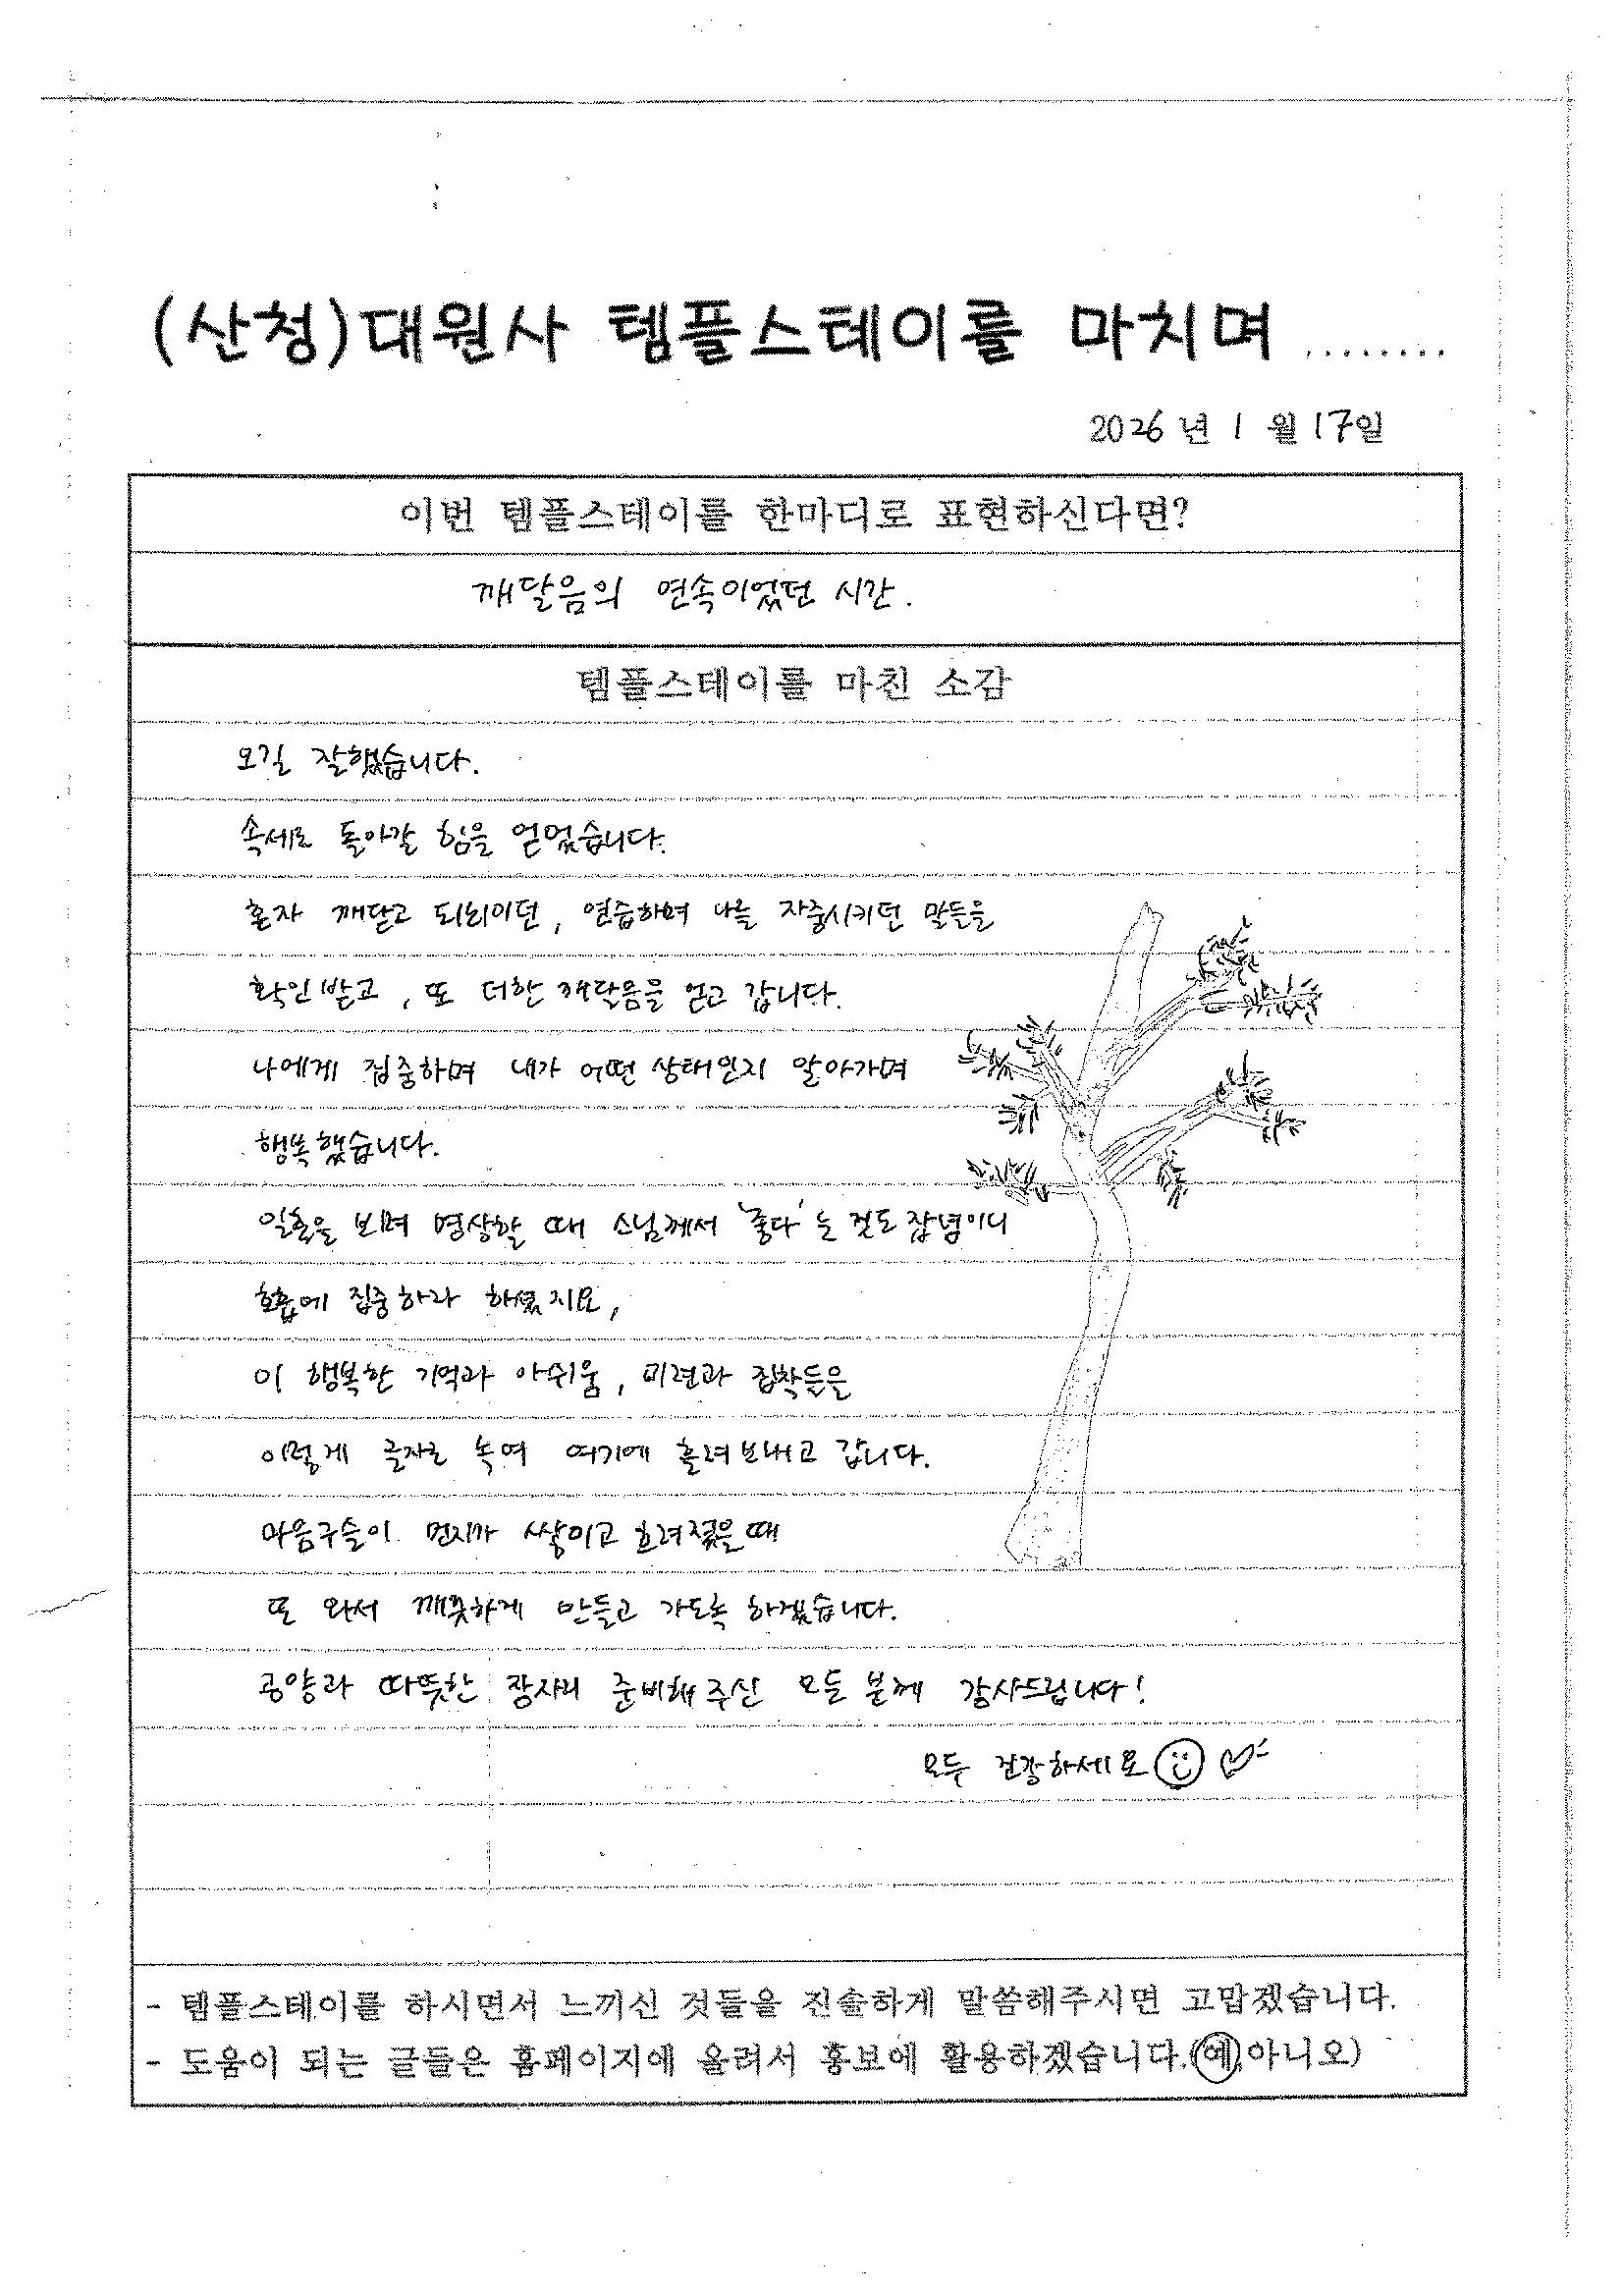 (산청)대원사 템플스테이를 마치며 ........
2026년 1월 17일
이번 템플스테이를 한마디로 표현하신다면?
깨달음의 연속이었던 시간.
템플스테이를 마친 소감
오길 잘했습니다.
속세로 돌아갈 힘을 얻었습니다.
혼자 깨닫고 되뇌이던, 연습하며 나를 자중시키던 말들을
확인받고, 또 더한 깨달음을 얻고 갑니다.
나에게 집중하며 내가 어떤 상태인지 알아가며
행복했습니다.
일출을 보며 명상할 때 스님께서 '좋다'는 것도 잡념이니
호흡에 집중하라 하셨지요,
이 행복한 기억과 아쉬움, 미련과 집착들을
이렇게 글자로 녹여 여기에 흘려보내고 갑니다.
마음구슬이 먼지가 쌓이고 흐려졌을 때
또 와서 깨끗하게 만들고 가도록 하겠습니다.
공양과 따뜻한 잠자리 준비해주신 모든 분께 감사드립니다!
모두 건강하세요
- 템플스테이를 하시면서 느끼신 것들을 진솔하게 말씀해주시면 고맙겠습니다.
- 도움이 되는 글들은 홈페이지에 올려서 홍보에 활용하겠습니다.(예,아니오)